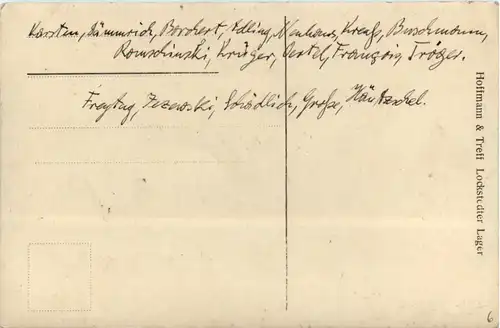 Karsten, Dämmrich, Borchert, Adling, Neuhaus, Krefs, Buschmann,
Romschinski, Krüger, Oertel, François, Tröger.
Freytag, Jezewski, Schädlich, Große,
Hoffmann & Treff Lockstedter Lager
6